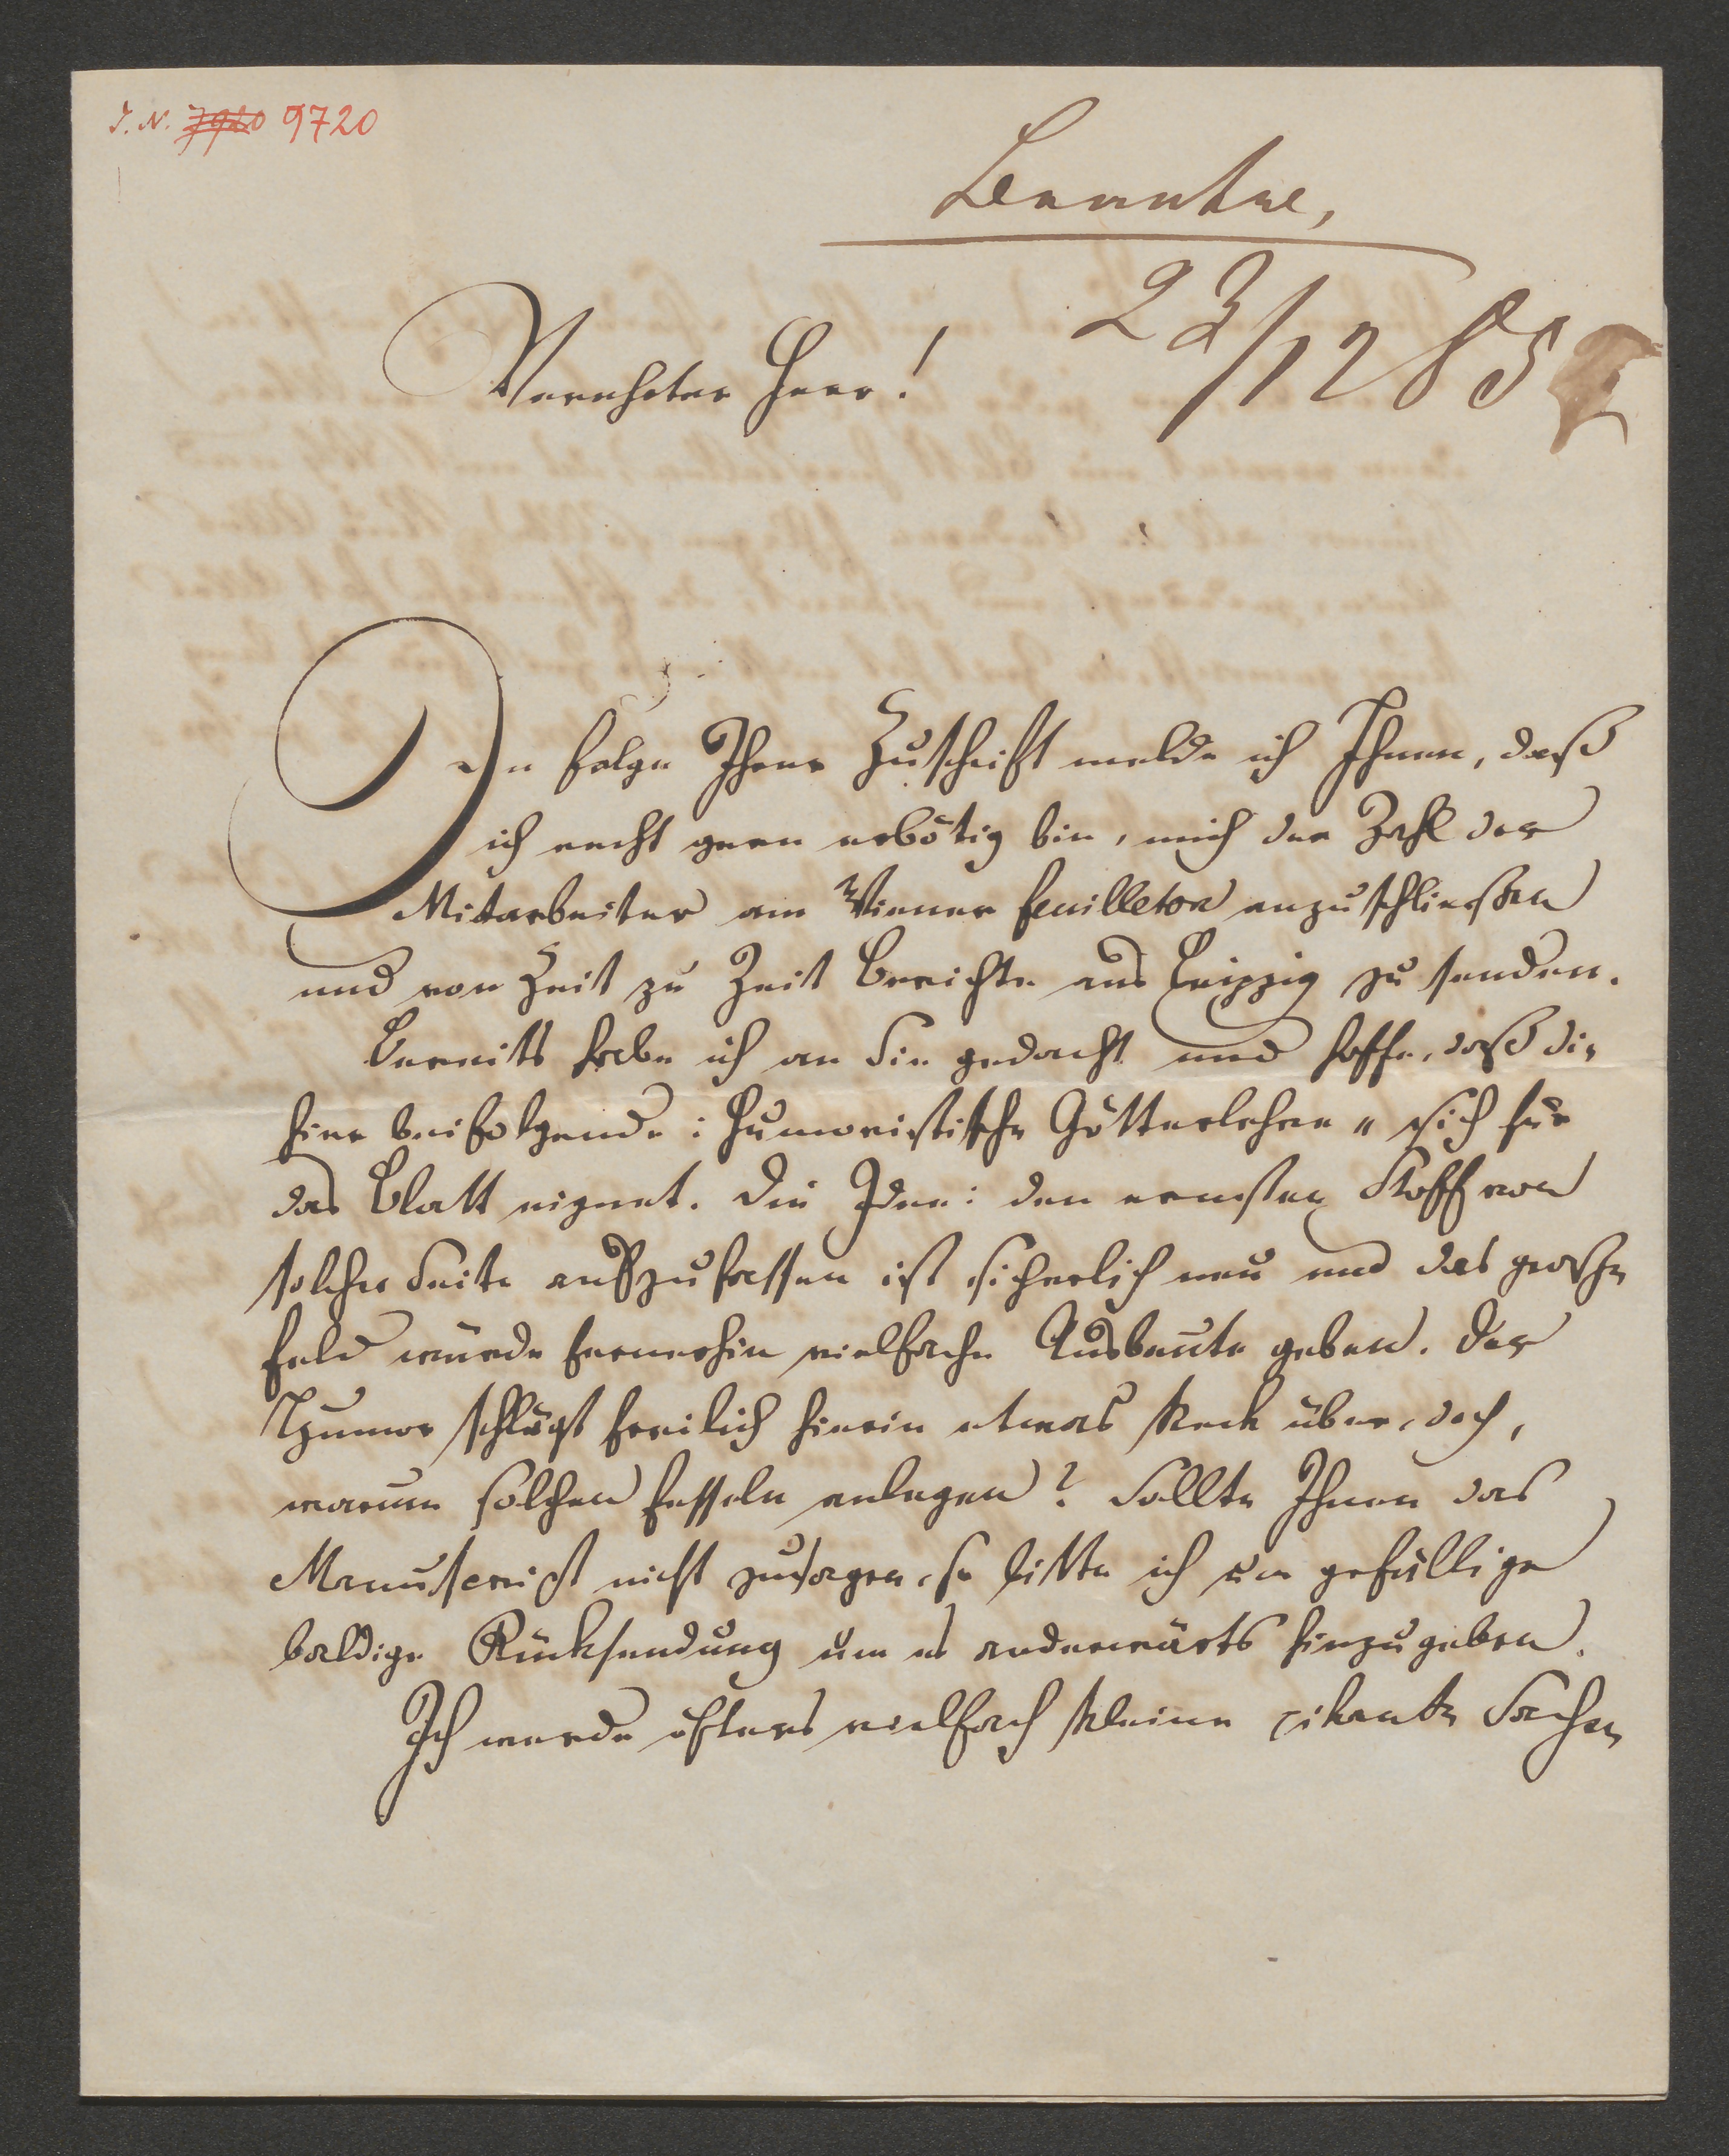 J. N. 7920 9720
23/12 85
Verehrter Herr!
In Folge Ihrer Zuschrift melde ich Ihnen, daß
ich recht gern erbötig bin, mich der Zahl der
Mitarbeiter am Wiener Feuilleton anzuschließen
und von Zeit zu Zeit Berichte aus Leipzig zu senden.
Bereits habe ich an Sie gedacht und hoffe, daß die
hier beifolgende: Humoristische Götterlehre" sich für
das Blatt eignet. Die Idee: den ernsten Stoff von
solcher Seite aufzufassen ist sicherlich neu und das große
Feld würde fernerhin vielfache Ausbeute geben. Der
Humor schlägt freilich hierin etwas keck über, doch,
warum solchen Fesseln anlegen? Sollte Ihnen das
Manuscript nicht zusagen, so bitte ich um gefällige
baldige Rücksendung um es anderwärts hinzugeben.
Ich werde öfters vielfach kleine pikante Sachen